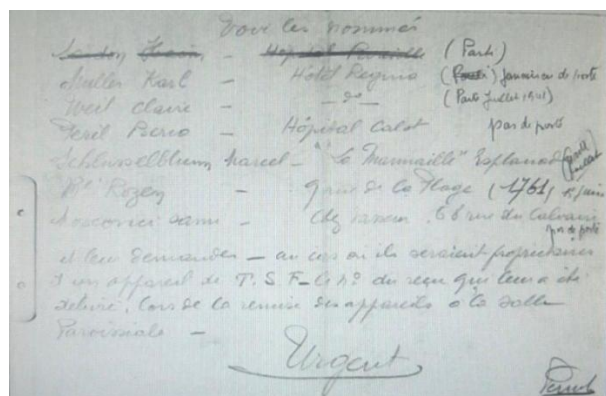 Voir les nommés
Hôpital (Parti)
Muller Karl - Hôtel Regina (Parti) jamais eu de poste
Weil Claire - - do - (Parti Juillet 1941)
Weil Pierre - Hôpital Calot pas de poste
Schlusselblum Marcel - "La Marmaille" Esplanade
Me Rozen - 9 rue de la Plage (1761) 15 juin
Moscovici - chez 66 rue du Calvaire
pas de poste
et leur demander - au cas où ils seraient propriétaires
d'un appareil de T. S. F - le no du reçu qui leur a été
délivré, lors de la remise des appareils à la salle
Paroissiale -
Urgent